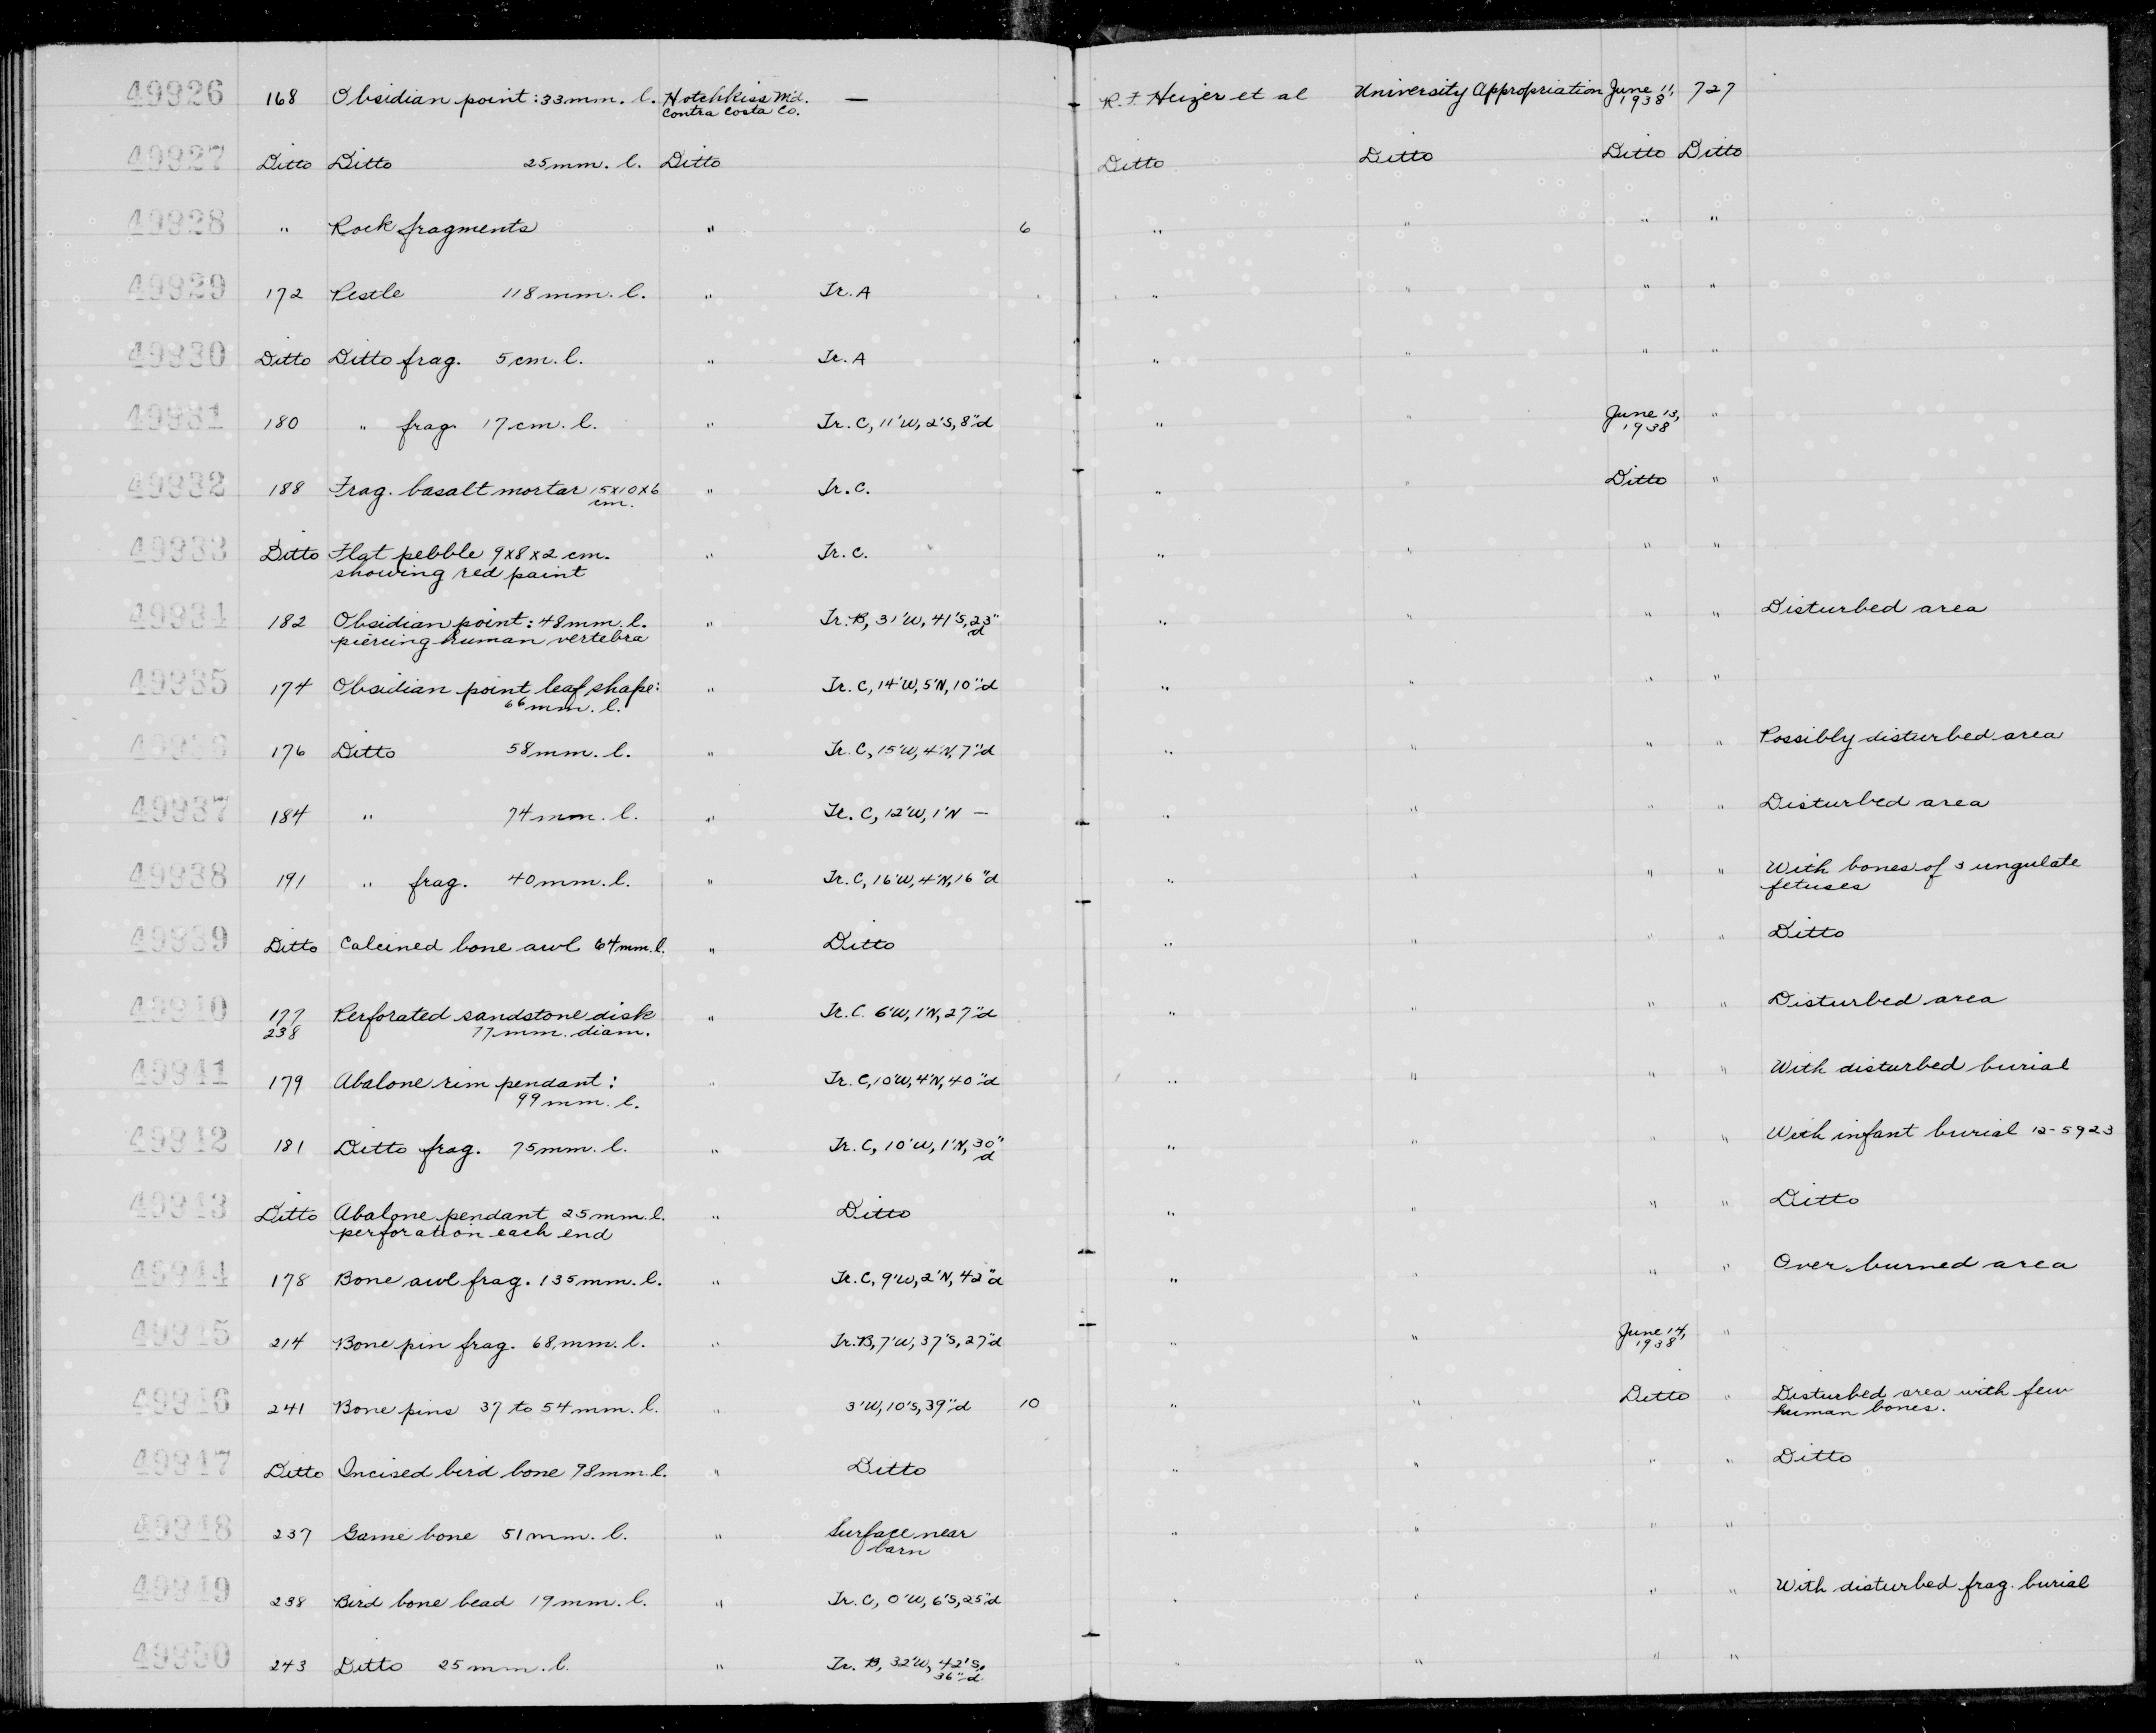 49926 168 Obsidian point: 33mm. l. Hotchkiss Md. Contra Costa Co. — R. F. Heizer et al University Appropriation June 11, 1938 727
49927 Ditto Ditto 25mm. l. Ditto Ditto Ditto Ditto Ditto
49928 " Rock fragments " 6 " " " "
49929 172 Pestle 118mm. l. " Tr. A " " " "
49930 Ditto Ditto frag. 5cm. l. " Tr. A " " " "
49931 180 " frag. 17cm. l. " Tr. C, 11'W, 2'S, 8"d " " June 13, 1938 "
49932 188 Frag. basalt mortar 15x10x6 cm. " Tr. C. " " Ditto "
49933 Ditto Flat pebble 9x8x2 cm. " Tr. C. " " " "
showing red paint
49934 182 Obsidian point: 48mm. l. " Tr. B, 31'W, 41'S, 23" d " " " " Disturbed area
piercing human vertebra
49935 174 Obsidian point leaf shape: " Tr. C, 14'W, 5'N, 10"d " " " "
66mm. l.
49936 176 Ditto 58mm. l. " Tr. C, 15'W, 4'N, 7"d " " " " Possibly disturbed area
49937 184 " 74mm. l. " Tr. C, 12'W, 1'N — " " " " Disturbed area
49938 191 " frag. 40mm. l. " Tr. C, 16'W, 4'N, 16"d " " " " With bones of 3 ungulate
fetuses
49939 Ditto Calcined bone awl 64mm. l. " Ditto " " " " Ditto
49940 177 Perforated sandstone disk " Tr. C. 6'W, 1'N, 27"d " " " " Disturbed area
238 77mm. diam.
49941 179 Abalone rim pendant: " Tr. C, 10'W, 4'N, 40"d " " " " With disturbed burial
99mm. l.
49942 181 Ditto frag. 75mm. l. " Tr. C, 10'W, 1'N, 30" d " " " " With infant burial 12-5923
49943 Ditto Abalone pendant 25mm. l. " Ditto " " " " Ditto
perforation each end
49944 178 Bone awl frag. 135mm. l. " Tr. C, 9'W, 2'N, 42"d " " " " Over burned area
49945 214 Bone pin frag. 68mm. l. " Tr. B, 7'W, 37'S, 27"d " " June 14, 1938 "
49946 241 Bone pins 37 to 54mm. l. " 3'W, 10'S, 39"d 10 " " Ditto " Disturbed area with few
human bones.
49947 Ditto Incised bird bone 98mm. l. " Ditto " " " " Ditto
49948 237 Game bone 51mm. l. " Surface near " " " "
barn
49949 238 Bird bone bead 19mm. l. " Tr. C, 0'W, 6'S, 25"d " " " " With disturbed frag. burial
49950 243 Ditto 25mm. l. " Tr. B, 32'W, 42'S, " " " "
36"d